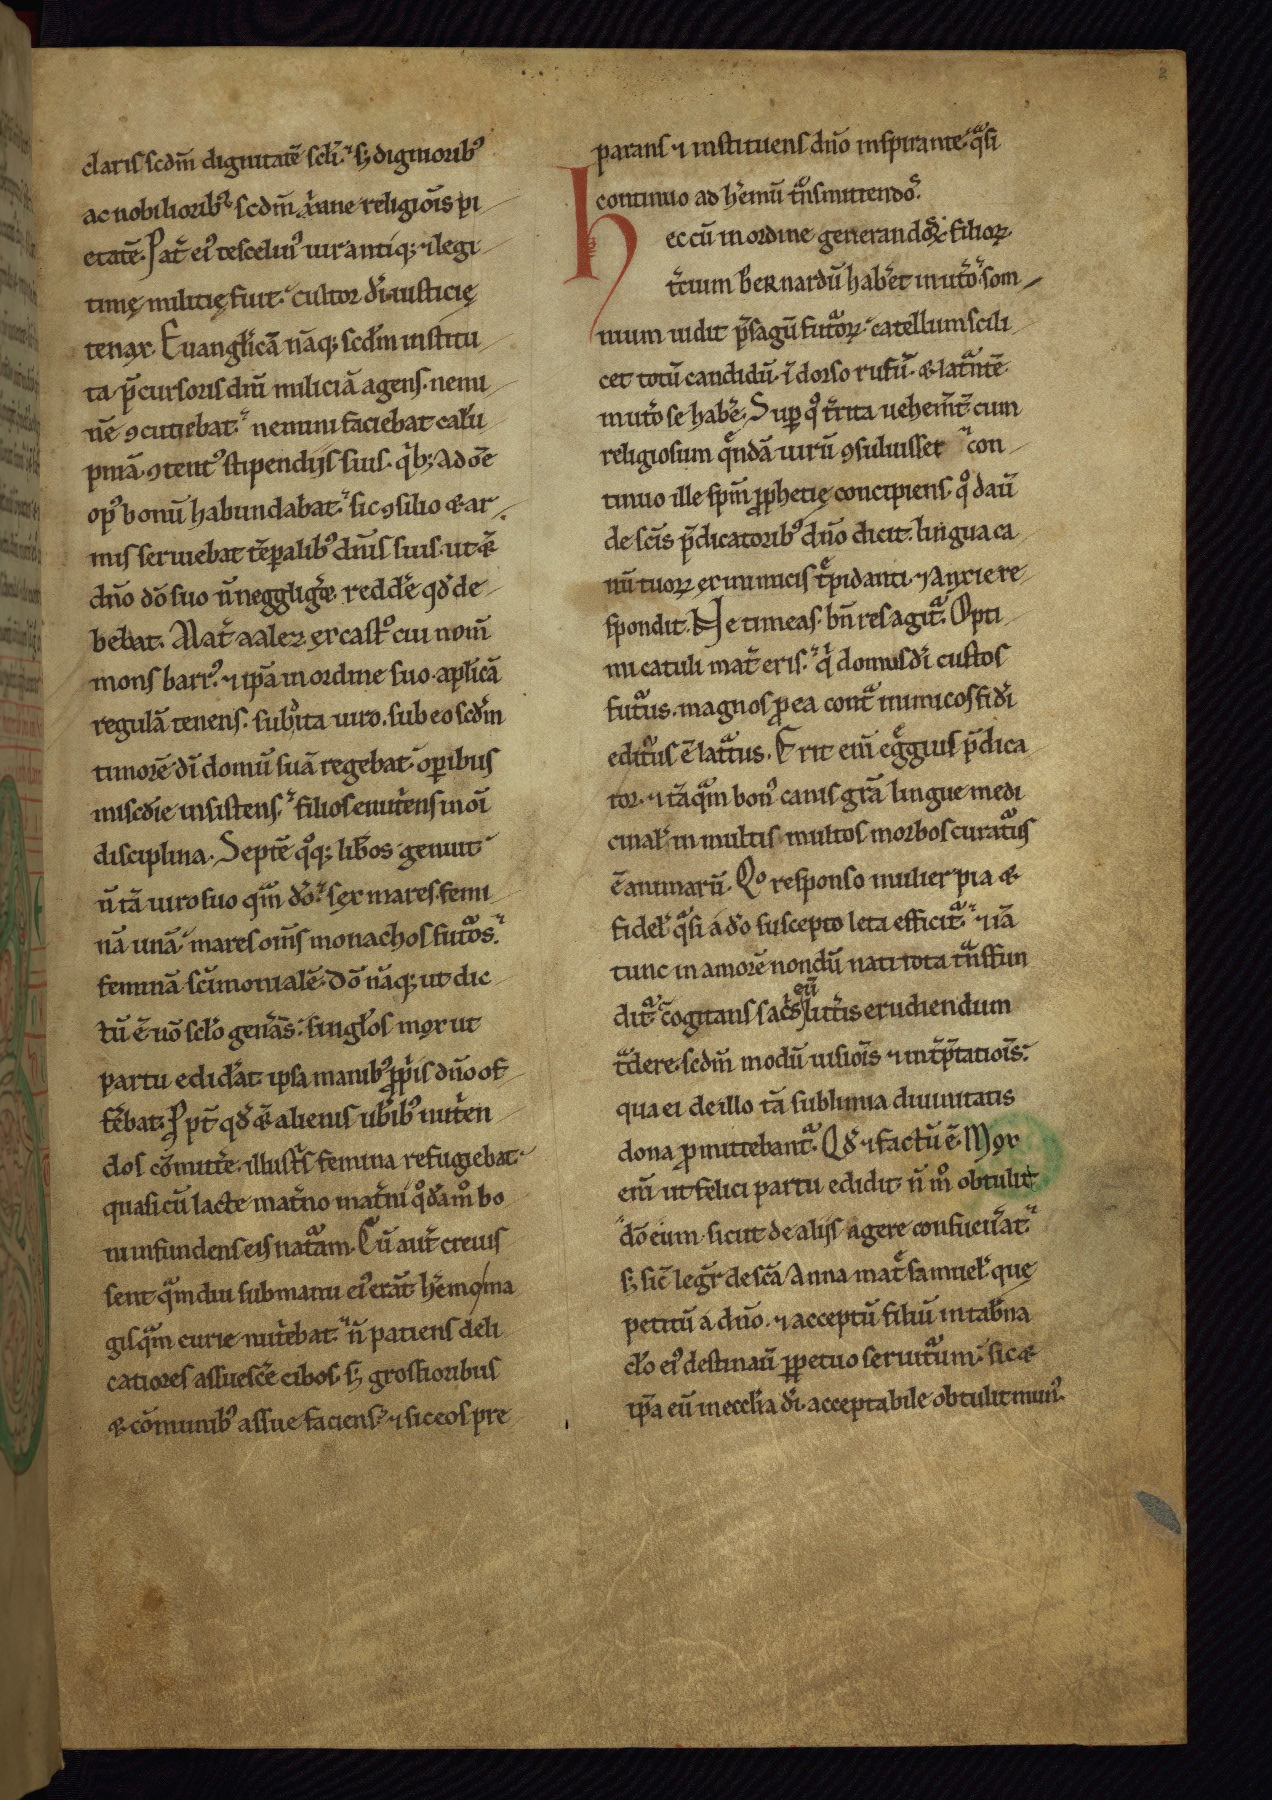 2
claris scdm̄ dignitatē scli: s; dignioribꝰ
ac nobiliorib; scdm̄ xp̄iane religiōis pi
etatē. Pat̄ eiꝰ tescelinꝰ uir antiq; ⁊ legi
timę militię fuit. cultor dī. iusticię
tenax. Euanglicā nāq; scdm institu
ta p̄cursoris dn̄i miliciā agens. nemi
nē ꝯcutiebat. nemini faciebat calū
pniā. ꝯtentꝰ stipendijs suis. qⁱb; ad om̄e
opꝰ bonū habundabat. sic ꝯsilio & ar
mis seruiebat tēpalibꝰ dn̄is suis. ut &
dn̄o dō suo n̄ neggliḡet reddere qd de
bebat. Mat̄ aalez ex castꝰ cui nom̄
mons barrꝰ. ⁊ ip̄a in ordine suo. aplicā
regulā tenens. subdita uiro. sub eo scdm
timorē dī domū suā regebat. oꝑibus
miscdie insistens. filios enutͥens in oī
disciplina. Septē qͦq; libos genuit
n̄ tā uiro suo qͣm dō. sex mares. femi
nā unā. mares om̄s monachos futͣos.
feminā sc̄imonialē. Dō nāq; ut dic
tū ē nō sclo gen̄ans. singlos mox ut
partu edidat. ipsa manibꝰ ꝓpͥis dn̄o of
ferebat. Ꝓpt̄ qd & alienis ubibꝰ nutͥen
dos cōmitte. illustͥs femina refugiebat.
quasi cū lacte mat̄no mat̄ni qͦdāmͦ bo
ni infundens eis natͣam. Cū aut̄ creuis
sent qͣmdiu sub manu eiꝰ erāt hēmo ma
gis qͣm curie nutͥebat. n̄ patiens deli
catiores assuesc̄e cibos. s; grossioribus
& cōmunibꝰ assue faciens. ⁊ sic eos pre
parans ⁊ instituens dn̄o inspirante. qͣsi
continuo ad hēmū tͣnsmittendos.
hec cū in ordine generandoꝝ filioꝝ
t̄cium bernardū haberet in utͦo. som
nium uidit p̄sagū futͣoꝝ. catellum scili
cet totū candidū. ī dorso rufū. & latͣntē
in utͦo se habe. Suꝑ qͦ t̄rita uehem̄t̄ cum
religiosum qͣndā uirū ꝯsuluisset con
tinuo ille sp̄m ꝓphetię concipiens. qͦ dauid
de sc̄is p̄dicatoribꝰ dn̄o dicit. lingua ca
nū tuoꝝ ex inimicis. tͤpidanti ⁊ Anxie re
spondit. Ne timeas. bn̄ res agitͣ. Opti
mi catuli mat̄ eris. qͥ domus dī custos
futͣus. magnos ꝓ ea contͣ inimicos fidī
editͣus ē latͣtus. Erit eni egͤgius p̄dica
tor. ⁊ tāqͣm bonꝰ canis grā lingue medi
cinal in multis multos morbos curatͣus
ē animarū. Qͦ responso mulier pia &
fidel. qͣsi a dō suscepto leta efficitͣ. ⁊ iā
tunc in amorē nondū nati tota tͣnsfun
ditͣ cogitans sacris eū litt̄is erudiendum
tͣdere. scdm̄ modū uisiōis ⁊ int̄p̄tatiōis.
qua ei de illo tā sublimia diuinitatis
dona ꝓmittebantͣ. Qd ⁊ factū ē. Mox
eni ut felici partu edidit n̄ mͦ obtulit
dō eum sicut de alijs agere consueuat.
s; sic legͥ de sc̄a Anna mat̄ samuel. quę
petitū a dn̄o. ⁊ acceptū filiū in tabna
clo eiꝰ destinauit ꝑpetuo seruitͣum. sic &
ip̄a eū in ecclia dī. acceptabile obtulit munꝰ.